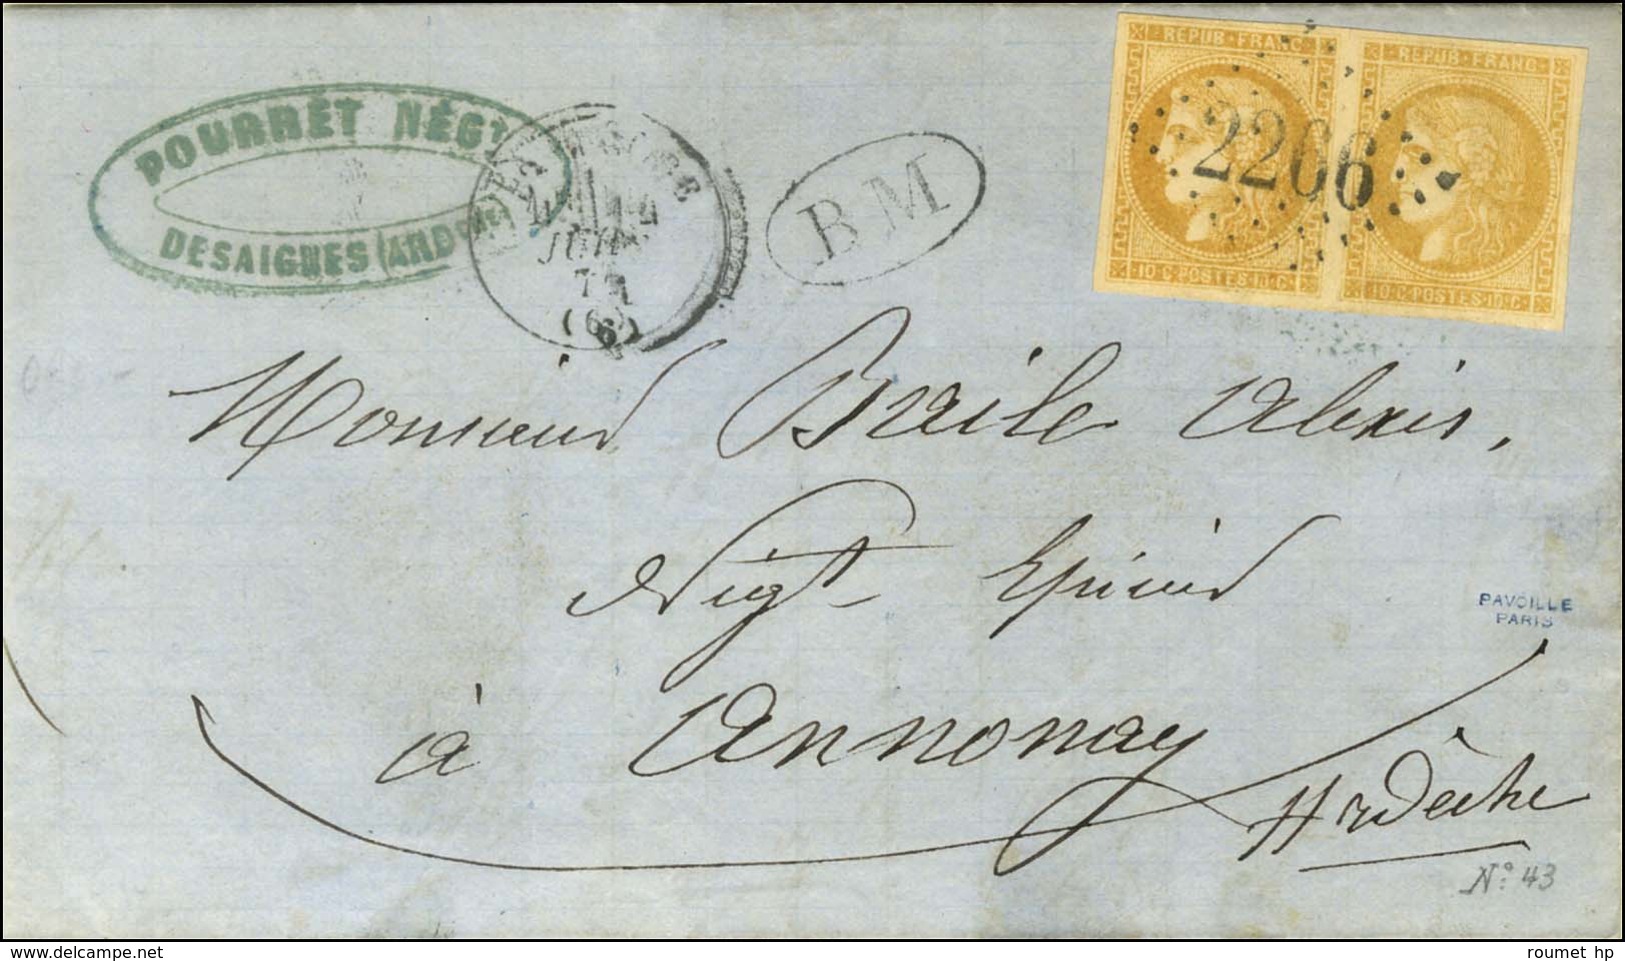 REPUB·FRANC· REPUB·FRANC·
10·C·POSTES·10·C· 10·C·POSTES·10·C·
2266
POURRET NÉGT
DESAIGNES (ARDCHE)
JUIN
(6)
BM
Monsieur Bruile Alexis,
Negt Epicier
PAVOILLE
PARIS
à Annonay
Ardèche
N° 43
delcampe.net
roumet hp